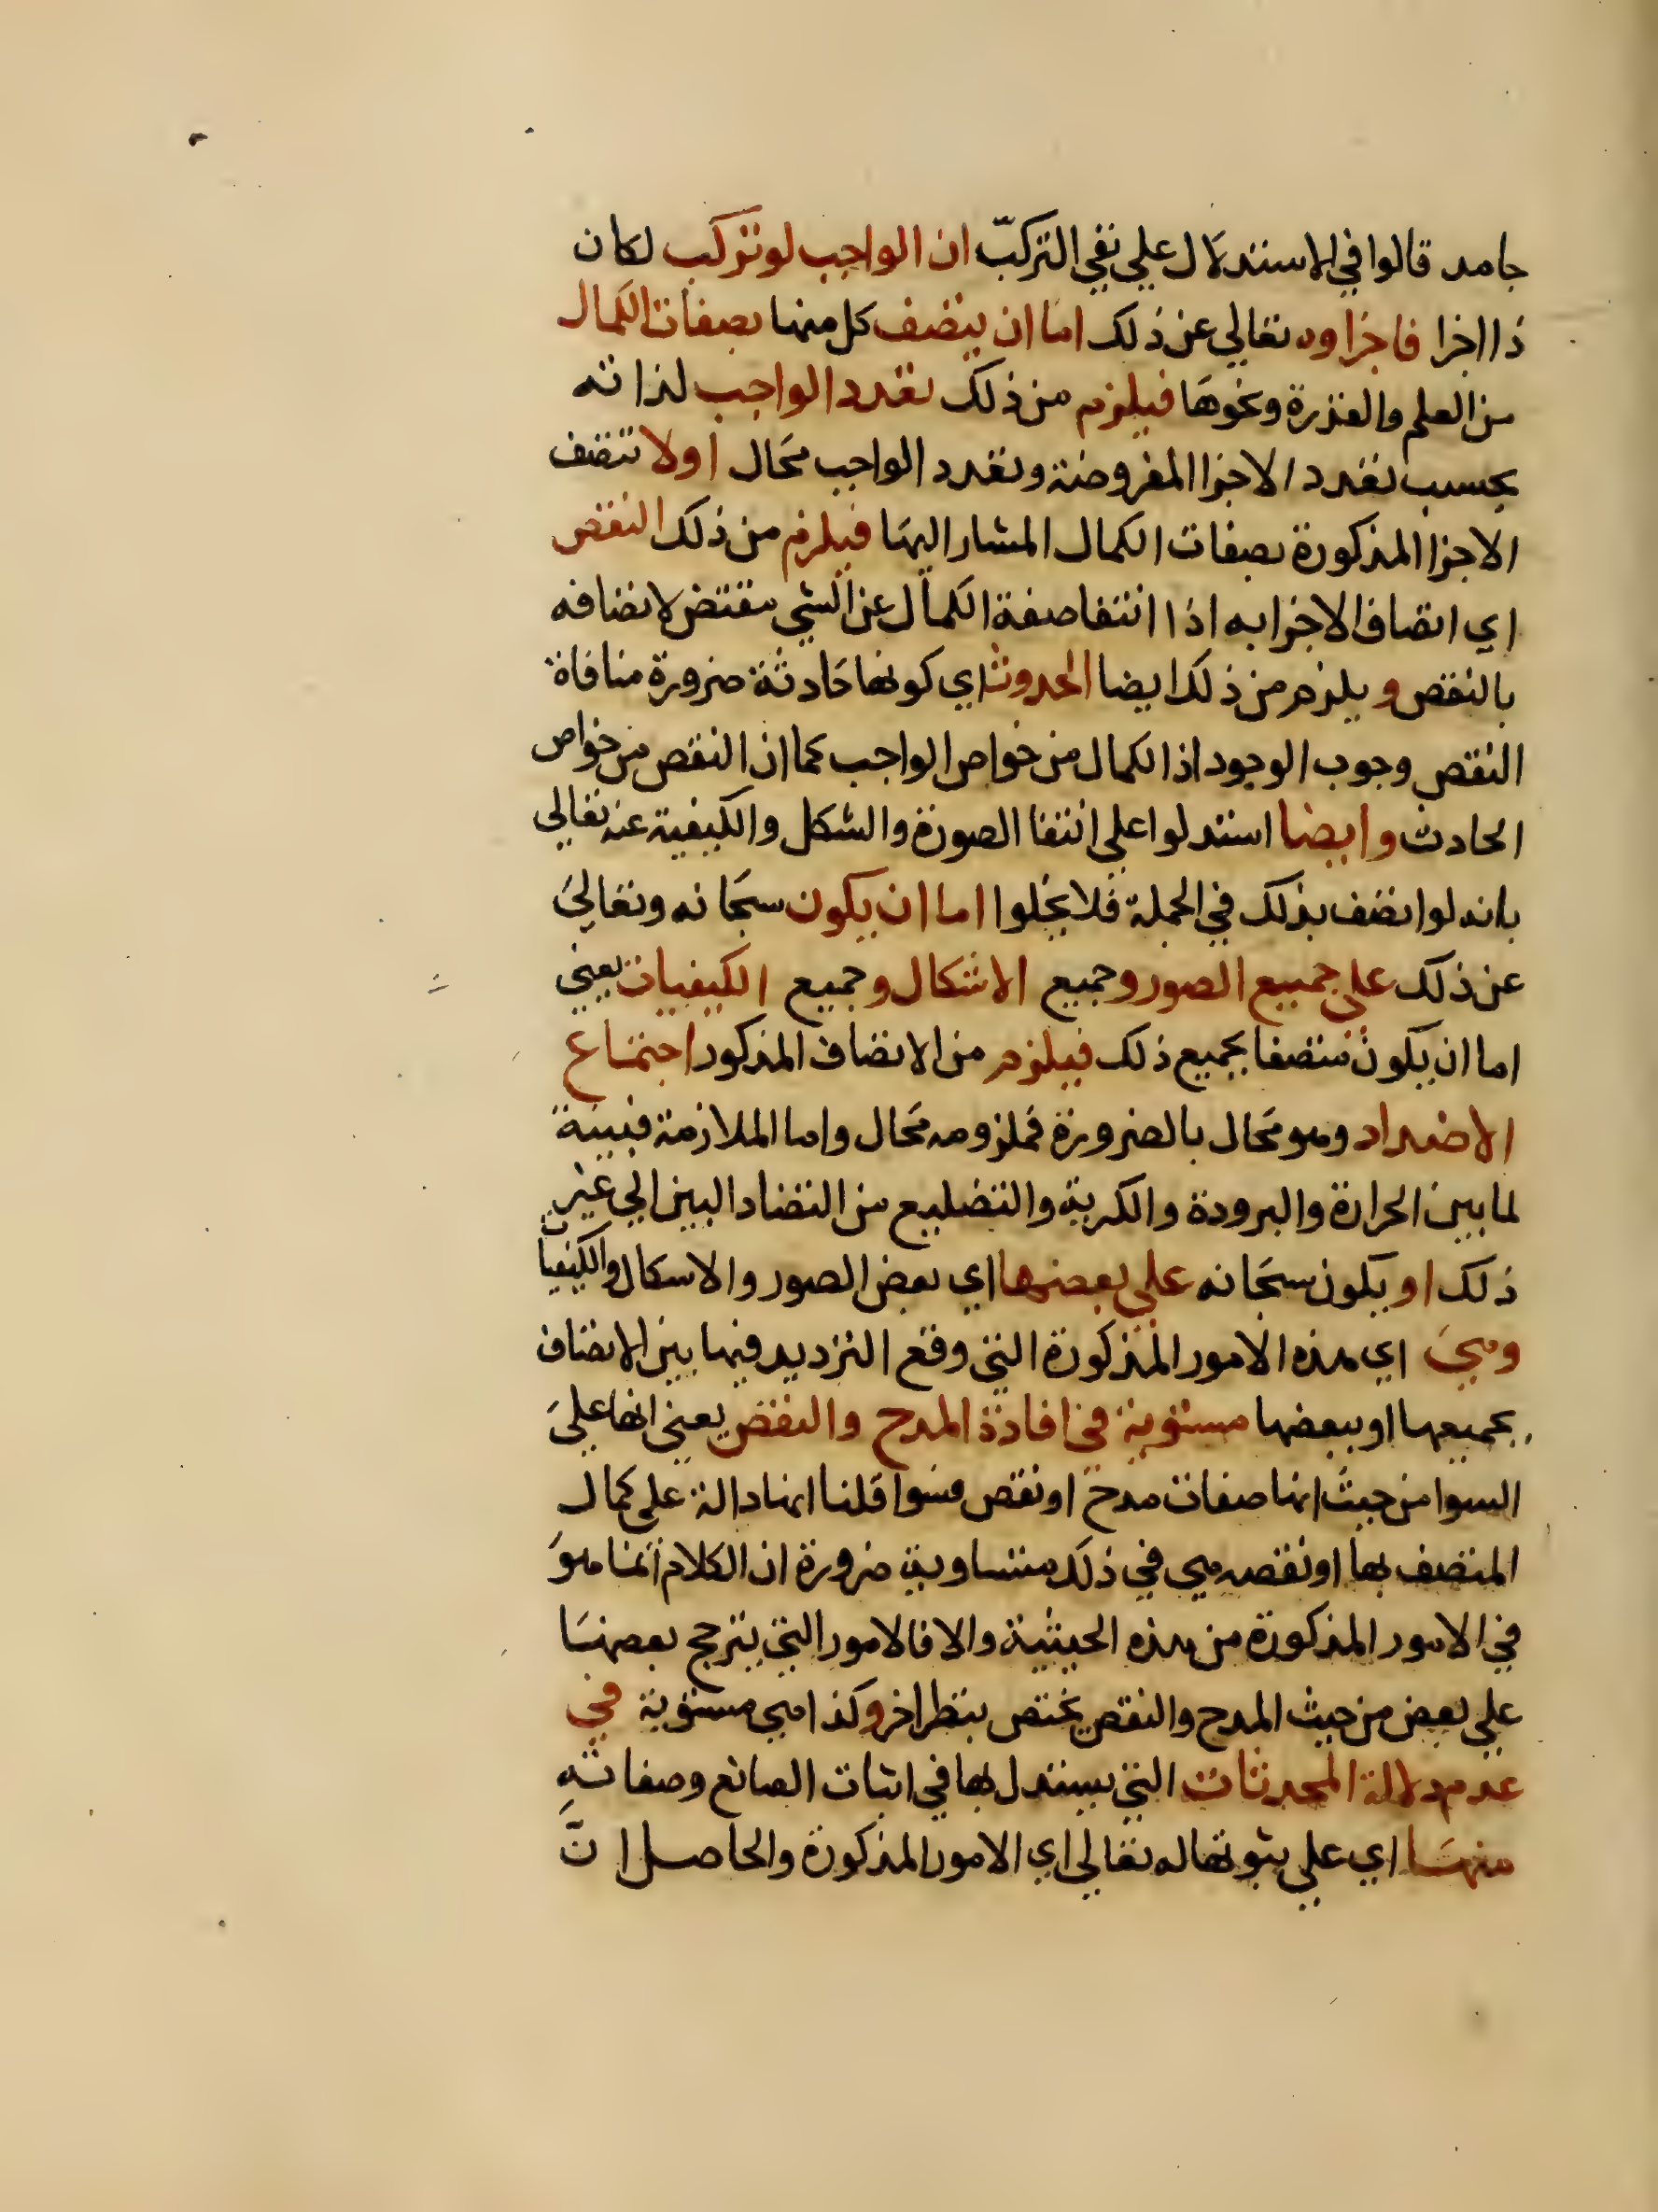 جامد قالوا في الاستدلال علي نفي التركب ان الواجب لو تركب لكان
ذا اجزا فاجزاوه تعالي عن ذلك اما ان يتصف كل منها بصفات الكمال
من العلم والقدرة ونحوها فيلزم من ذلك تعدد الواجب لذاته
بحسب تعدد الاجزا المفروضة وتعدد الواجب محال اولا تتصف
الاجزا المذكورة بصفات الكمال المشار اليها فيلزم من ذلك النقص
اي اتصاف الاجزا به اذا انتفا صفة الكمال عن الشي مقتض لاتصافه
بالنقص ويلزم من ذلك ايضا الحدوث اي كونها حادثة ضرورة منافاة
النقص وجوب الوجود اذ الكمال من خواص الواجب كما ان النقص من خواص
الحادث وايضا استدلوا علي انتفا الصورة والشكل والكيفية عنه تعالي
بانه لو اتصف بذلك في الجملة فلا يخلوا اما ان يكون سبحانه وتعالي
عن ذلك علي جميع الصور وجميع الاشكال وجميع الكيفيات يعني
اما ان يكون متصفا بجميع ذلك فيلزم من الاتصاف المذكور اجتماع
الاضداد وهو محال بالضرورة فملزومه محال واما الملازمة فبينة
لما بين الحرارة والبرودة والكرية والتضليع من التضاد البين الي غير
ذلك او يكون سبحانه علي بعضها اي بعض الصور والاشكال والكيفيات
وهي اي هذه الامور المذكورة التي وقع الترديد فيها بين الاتصاف
بجميعها او ببعضها مستوية في افادة المدح والنقص يعني انها علي
السوا من حيث انها صفات مدح او نقص فسوا قلنا انها دالة علي كمال
المتصف بها او نقصه هي في ذلك متساوية ضرورة ان الكلام انما هو
في الامور المذكورة من هذه الحيثية والا فالامور التي يترجح بعضها
علي بعض من حيث المدح والنقص يختص بنظر اخر وكذا هي مستوية في
عدم دلالة المحدثات التي يستدل بها في اثبات الصانع وصفاته
منها اي علي ثبوتها له تعالي اي الامور المذكورة والحاصل ان